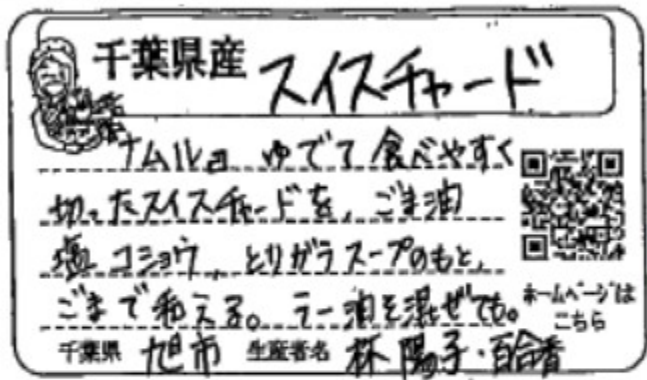 千葉県産 スイスチャード
ナムル ゆでて食べやすく
切ったスイスチャードを、ごま油
塩コショウ、とりガラスープのもと、
ごまで和える。ラー油を混ぜても。
ホームページは
こちら
千葉県 旭市 生産者名 林 陽子・百合香